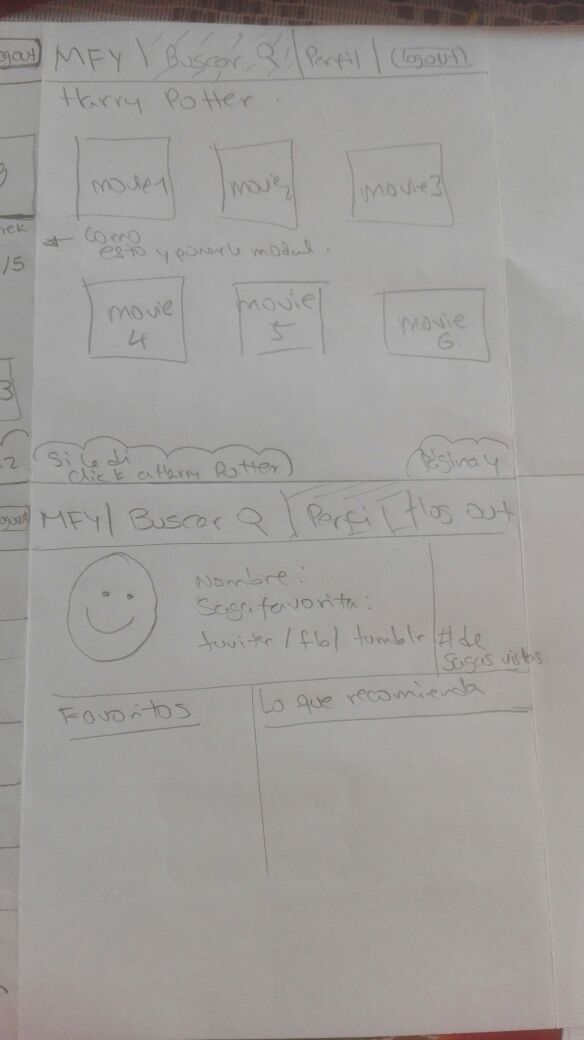 MFY | Buscar | Perfil | Logout
Harry Potter.
movie1 movie2 movie3
* como
esto y ponerle modal.
movie
4
movie
5
movie
6.
Si le di
click a Harry Potter
Página 4
MFY | Buscar | Perfil | log out
Nombre:
Saga favorita:
tuviter / fb / tumblr
# de
sagas vistas
Favoritos
Lo que recomienda
gout
3
rek
/5
3
2
gout